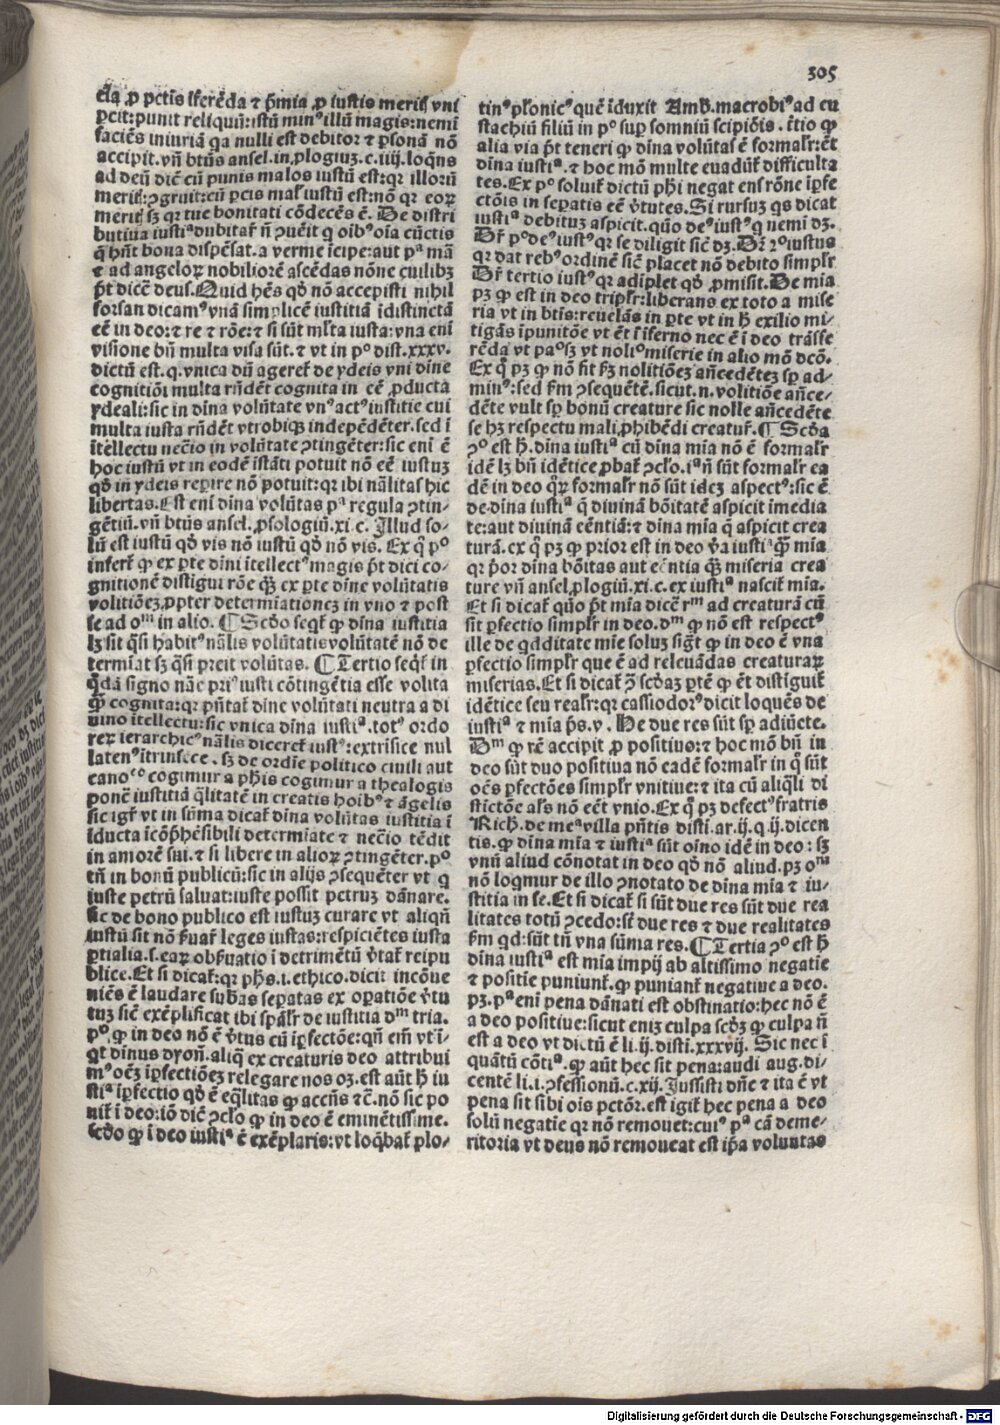 305
ela ꝓ pctīs īferēda ⁊ p̄mia ꝓ iustis meritꝭ vni
ꝑcit: punit reliquū: istū minꝰ illū magis: nemī
faciēs iniuriā qa nulli est debitor ⁊ ꝑsonā nō
accipit. vñ btūs ansel. in ꝓlogiuꝫ. c. iiij. loqn̄s
ad deū dic̄ cū punis malos iustū est: qꝛ illoꝝ
meritꝭ ꝯgruit: cū ꝑcis malꝭ iustū est: nō qꝛ eoꝝ
meritꝭ sꝫ qꝛ tue bonitati cōdecēs ē. De distri
butiua iustiᵃ dubitat̄ ñ ꝯueīt ꝗ oibꝰ oīa cūctis
q̄ hn̄t bona dispēsat. a verme īcipe: aut pᵃ mā
⁊ ad angeloꝝ nobiliorē ascēdas nōne cuilibꝫ
pt̄ dicē deus. Quid hēs qd̄ nō accepisti nihil
forsan dicamꝰ vnā simplicē iustitiā īdistinctā
eē in deo: ⁊ re ⁊ rōe: ⁊ si sūt ml̄ta iusta: vna eni
visione bn̄ multa visa sūt. ⁊ vt in pº dist. xxxv.
dictū est. q. vnica dūi agerct̄ de ydeis vni dīne
cognitiōi multa rn̄dēt cognita in eē ꝓducta
ydeali: sic in dīna volūtate vnꝰ actꝰ iustitie cui
multa iusta rn̄dēt vtrobiqꝫ indepēdēter. sed ī
ītellectu nec̄io in volūtate ꝯtingēter: sic eni ē
hoc iustū vt in eodē īstāti potuit nō eē iustuꝫ
qd̄ in ydeis reꝑire nō potuit: qꝛ ibi nālitas hic
libertas. Est eni dīna volūtas pᵃ regula ꝯtin-
gētiū. vñ btūs ansel. ꝓsologiū. xi. c. Illud so-
lū est iustū qd̄ vis nō iustū qd̄ nō vis. Ex q̄ pº
infert̄ ꝙ ex ꝑte dīni ītellectꝰ magis pt̄ dici co-
gnitionē distīgui rōe qꝫ ex ꝑte dīne volūtatis
volitiōeꝫ ꝓpter determīationeꝫ in vno ⁊ post
se ad oᵐ in alio. ¶ Scd̄o seqt̄ ꝙ dīna iustitia
lꝫ sit q̄si habitꝰ nālis volūtatis volūtatē nō de
termīat sꝫ q̄si preit volūtas. ¶ Tertio seqt̄ in
q̄dā signo nāe priꝰ iusti cōtingētia esse volita
ꝙ cognita: qꝛ pn̄tat̄ dīne volūtati neutra a di
uino ītellectu: sic vnica dīna iustiᵃ. totꝰ ordo
reꝝ ierarchicꝰ nālis dicerct̄ iustꝰ: extrīsice nul
latenꝰ ītrinsece. sꝫ de ordīe politico ciuili aut
eanoᶜᵒ cogimur a phīs cogimur a theologis
ponē iustitiā q̄litatē in creatis hoibꝰ ⁊ āgelis
sic igit̄ vt in sūma dicat̄ dīna volūtas iustitia ī
īducta icōp̄hēsibili determiate ⁊ nec̄io tēdit
in amorē sui. ⁊ si libere in alioꝝ ꝯtingēter. pº
tn̄ in bonū publicū: sic in alijs ꝯsequēter vt q
iuste petrū saluat: iuste possit petruꝫ dānare.
sic de bono publico est iustuꝫ curare vt aliqn̄
iustū sit nō ẜuar̄ leges iustas: respiciētes iusta
ꝑtialia. s. eaꝝ obẜuatio ī detrimētū v̄tat̄ reipu
blice. Et si dicat̄: qꝛ phs. i. ethico. dicit incōue
niēs ē laudare subās seꝑatas ex oꝑatiōe v̄tu
tuꝫ sic̄ exēplificat ibi spālr̄ de iustitia dᵐ tria.
pº ꝙ in deo nō ē v̄tus cū īꝑfectōe: qn̄ em̄ vt ī-
q̄t dīnus dyoñ. aliq̄ ex creaturis deo attribui
mꝰ oēꝫ īꝑfectiōeꝫ relegare nos oꝫ. est aūt h̄ iu
stiᵃ īꝑfectio qd̄ ē eq̄litas ꝙ accn̄s ⁊c̄. nō sic po
nit̄ ī deo: iō dic̄ ꝯclo ꝙ in deo ē eminētissime.
scd̄o ꝙ ī deo iustiᵃ ē exēplaris: vt loq̄bat̄ plo-
tinꝰ pl̄onicꝰ quē īduxit Amb. macrobiꝰ ad eu
stachiū filiū in pº suꝑ somniū scipiōis. t̄tio ꝙ
alia via pt̄ teneri ꝙ dīna volūtas ē formalr̄: ēt
dīna iustiᵃ. ⁊ hoc mō multe euadūt̄ difficulta
tes. Ex pº soluit̄ dictū phi negat ens rōne īꝑfe
ctōis in seꝑatis eē v̄tutes. Si rursuꝫ qs dicat
iustiᵃ debituꝫ aspicit. quō deꝰ iustꝰ q nemī dꝫ.
Dr̄ pº deꝰ iustꝰ qꝛ se diligit sic̄ dꝫ. Dr̄ 2º iustus
qꝛ dat rebꝰ ordinē sic̄ placet nō debito simplr̄
Dr̄ tertio iustꝰ qꝛ adīplet qd̄ ꝓmisit. De mīa
pꝫ ꝙ est in deo triplr̄: liberans ex toto a mise
ria vt in btīs: reuelās in ꝑte vt in h̄ exilio mi-
tigās īpunitōe vt ēt ī īferno nec ē ī deo trāsfe
rēda vt paᵒ sꝫ vt noliᵒ miserie in alio mō dcō.
Ex q̄ pꝫ ꝙ nō fit ẜm nolitiōeꝫ añcedēteꝫ sꝑ ad-
minꝰ: sed ẜm ꝯsequētē. sicut. n. volitiōe añce-
dēte vult sꝑ bonū creature sic nolle añcedēte
se hꝫ respectu mali ꝓhibēdi creatur̄. ¶ Scd̄a
ꝯº est h̄. dīna iustiᵃ cū dīna mīa nō ē formalr̄
idē lꝫ bn̄ idētice ꝓbat̄ ꝯclo. iᵃ ñ sūt formalr̄ ea
dē in deo q̄ꝝ formalr̄ nō sūt ideꝫ aspectꝰ: sic ē
de dīna iustiᵃ q̄ diuinā bōitatē aspicit īmedia
te: aut diuinā eēntiā: ⁊ dīna mīa q̄ aspicit crea
turā. ex q̄ pꝫ ꝙ prior est in deo v̄a iustiᵃ qꝫ mīa
qꝛ p̄or dīna bōitas aut eēntia qꝫ miseria crea
ture vñ ansel. ꝓlogiū. xi. c. ex iustiᵃ nascit̄ mīa.
Et si dicat̄ quō pt̄ mīa dicē rᵐ ad creaturā cū
sit ꝑfectio simplr̄ in deo. dᵐ ꝙ nō est respectꝰ
ille de qdditate mīe soluꝫ sigt̄ ꝙ in deo ē vna
ꝑfectio simplr̄ que ē ad releuādas creaturaꝝ
miserias. Et si dicat̄ ꝯ̄ scd̄aꝫ ꝑtē ꝙ ēt distiguit̄
idētice seu realr̄: qꝛ cassiodorꝰ dicit loquēs de
iustiᵃ ⁊ mīa ps̄. v. He due res sūt sꝑ adiūcte.
Dᵐ ꝙ rē accipit ꝓ positiuo: ⁊ hoc mō bn̄ in
deo sūt duo positiua nō eadē formalr̄ in q̄ sūt
oēs ꝑfectōes simplr̄ vnitiue: ⁊ ita cū aliq̄li di
stictōe al̄s nō eēt vnio. Ex q̄ pꝫ defectꝰ fratris
Rich. de meᵃ villa pn̄tis disti. ar. ij. q. ij. dicen
tis. ꝙ dīna mīa ⁊ iustiᵃ sūt oīno idē in deo: sꝫ
vnū aliud cōnotat in deo qd̄ nō aliud. pꝫ oᵐ
nō loqmur de illo ꝯnotato de dīna mīa ⁊ iu-
stitia in se. Et si dicat̄ si sūt due res sūt due rea
litates totū ꝯcedo: st̄ due res ⁊ due realitates
ẜm qd: sūt tn̄ vna sūma res. ¶ Tertia ꝯº est h̄
dīna iustiᵃ est mīa impij ab altissimo negatie
⁊ positie puniunt̄. ꝙ puniant̄ negatiue a deo.
pꝫ. pᵃ eni pena dānati est obstinatio: hec nō ē
a deo positiue: sicut enīꝫ culpa scd̄ꝫ ꝙ culpa ñ
est a deo vt dictū ē li. ij. disti. xxxvij. Sic nec ī
quātū cōtiᵃ. ꝙ aūt hec sit pena: audi aug. di-
centē li. i. ꝯfessionū. c. xij. Iussisti dn̄e ⁊ ita ē vt
pena sit sibi oīs pctōr. est igit̄ hec pena a deo
solū negatie qꝛ nō remouet: cuiꝰ pᵃ cā deme-
ritoria vt deus nō remoueat est ip̄a voluntas
Digitalisierung gefördert durch die Deutsche Forschungsgemeinschaft - DFG